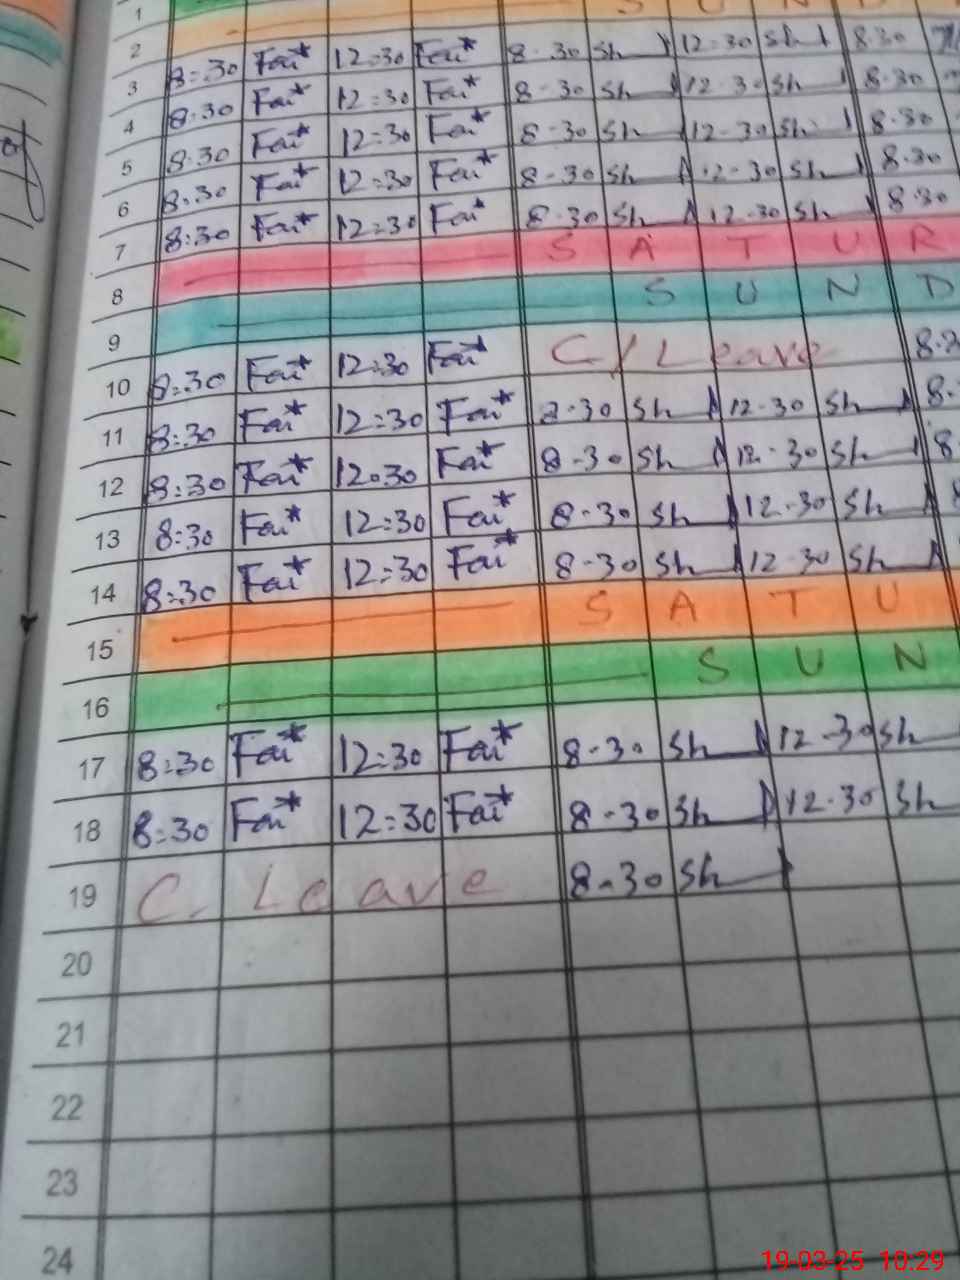 1
2 S U N D
3 8:30 Fai* 12:30 Fai* 8-30 Sh 12-30 Sh 8-30
4 8:30 Fai* 12:30 Fai* 8-30 Sh 12-30 Sh 8-30
5 8:30 Fai* 12:30 Fai* 8-30 Sh 12-30 Sh 8-30
6 8:30 Fai* 12:30 Fai* 8-30 Sh 12-30 Sh 8-30
7 8:30 Fai* 12:30 Fai* 8-30 Sh 12-30 Sh 8-30
8 S A T U R
9 S U N D
10 8:30 Fai* 12:30 Fai* C/Leave
11 8:30 Fai* 12:30 Fai* 8-30 Sh 12-30 Sh
12 8:30 Fai* 12:30 Fai* 8-30 Sh 12-30 Sh
13 8:30 Fai* 12:30 Fai* 8-30 Sh 12-30 Sh
14 8:30 Fai* 12:30 Fai* 8-30 Sh 12-30 Sh
15 S A T U
16 S U N
17 8:30 Fai* 12:30 Fai* 8-30 Sh 12-30 Sh
18 8:30 Fai* 12:30 Fai* 8-30 Sh 12-30 Sh
19 C. Leave 8-30 Sh
20
21
22
23
24
19-03-25 10:29